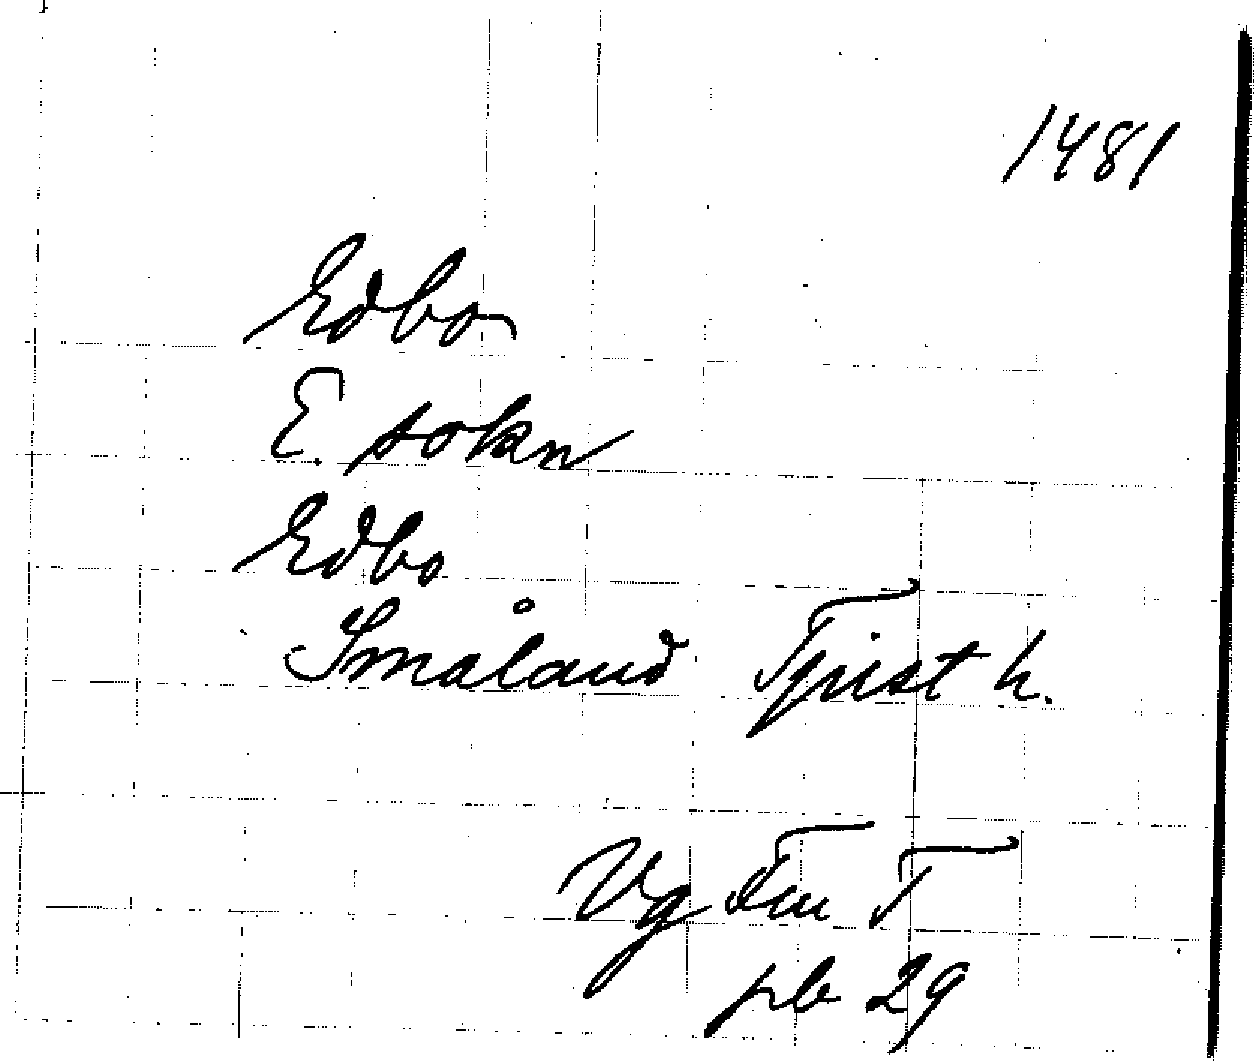 1481
Edbo
E. sokn
Edbo
Småland Tjust h.
Vg Fem T
pb 29